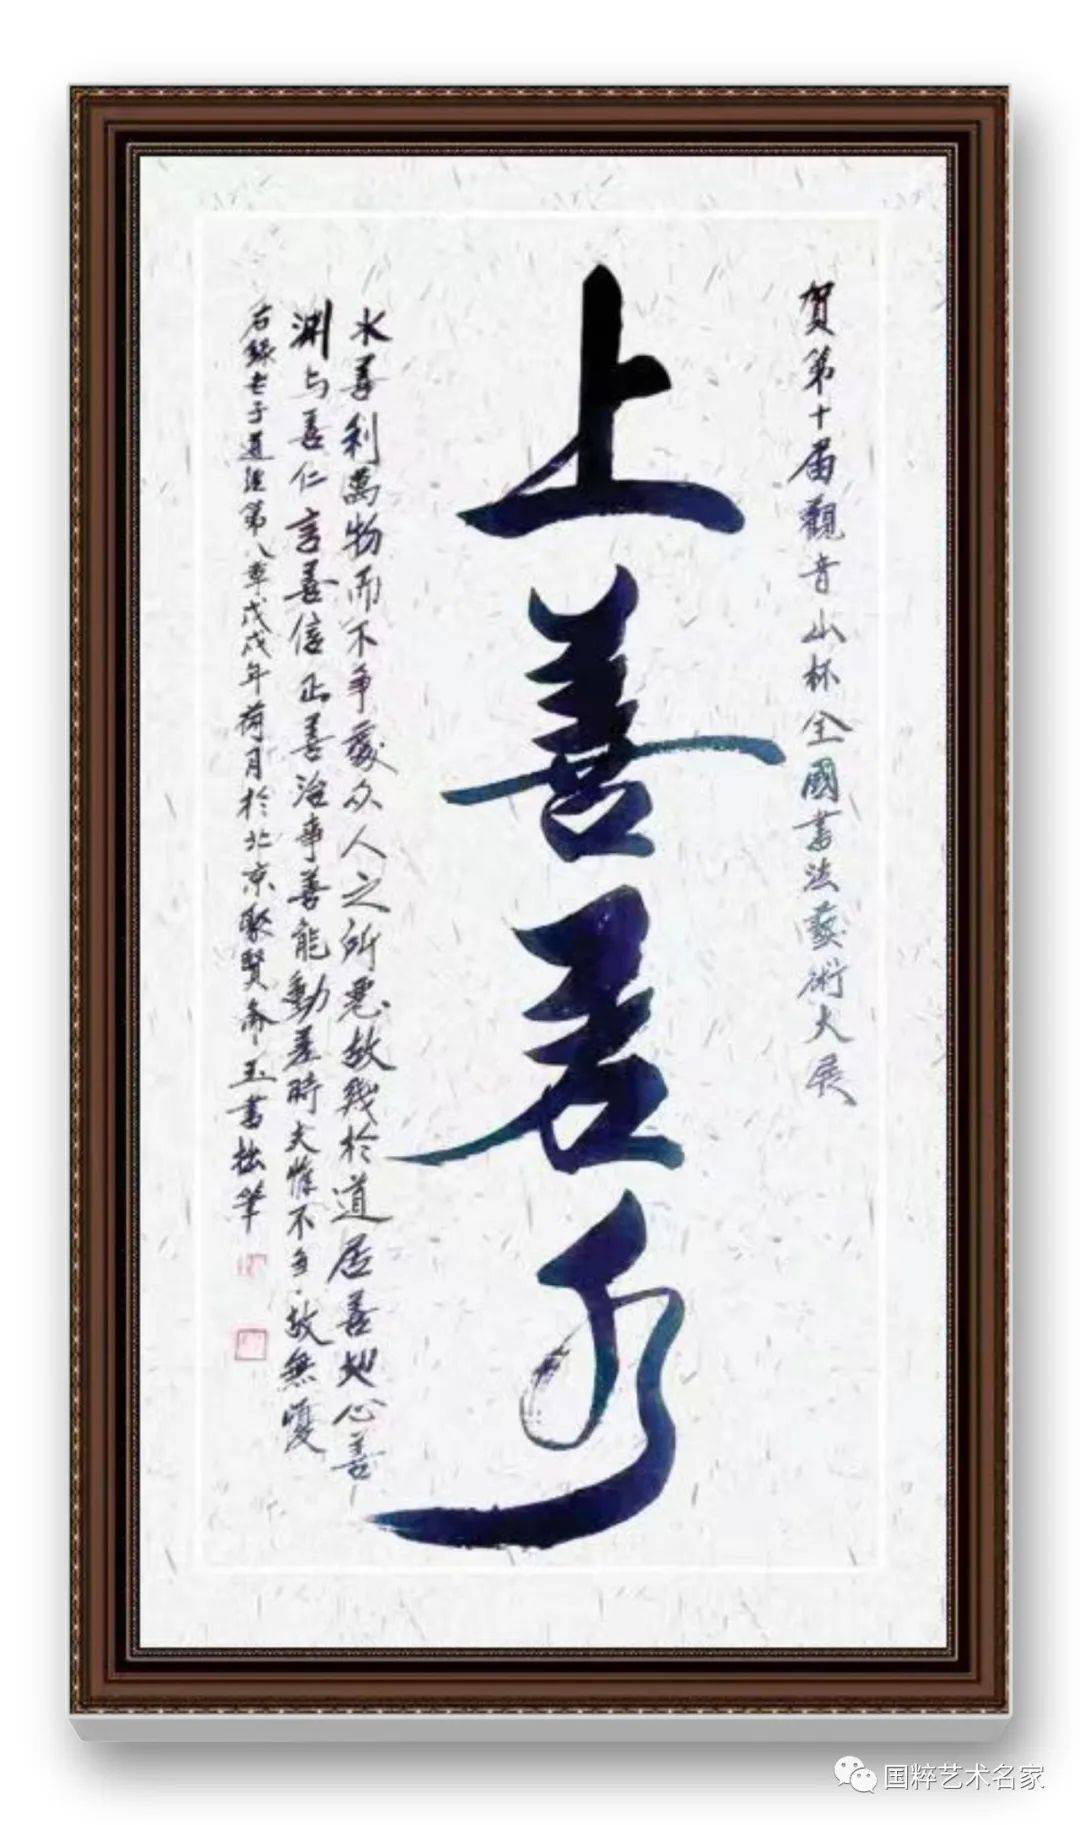 賀第十届觀音山杯全國書法藝術大展
上善若水
水善利萬物而不争處众人之所惡故幾於道居善地心善
渊与善仁言善信正善治事善能動善時夫惟不争故無憂
右録老子道經第八章戊戌年荷月於北京聚賢斋玉書拙筆
国粹艺术名家